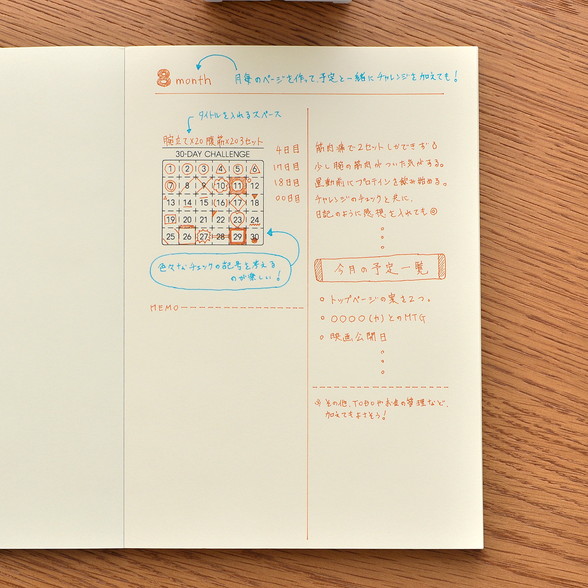 8 month
月毎のページを作って予定と一緒にチャレンジを加えても!
タイトルを入れるスペース
腕立て×20 腹筋×20 3セット
30-DAY CHALLENGE
1 2 3 4 5 6
7 8 9 10 11 12
13 14 15 16 17 18
19 20 21 22 23 24
25 26 27 28 29 30
4日目
17日目
18日目
00日目
色々なチェックの記号を考える
のが楽しい!
MEMO
筋肉痛で2セットしかできず
少し腕の筋肉がついた気がする。
運動前にプロテインを飲み始める。
チャレンジのチェックと共に、
日記のように感想を入れても◎
今月の予定一覧
トップページの案を2つ。
○○○○(株)とのMTG
映画公開日
その他、TODOやお金の管理など、
加えても良さそう!